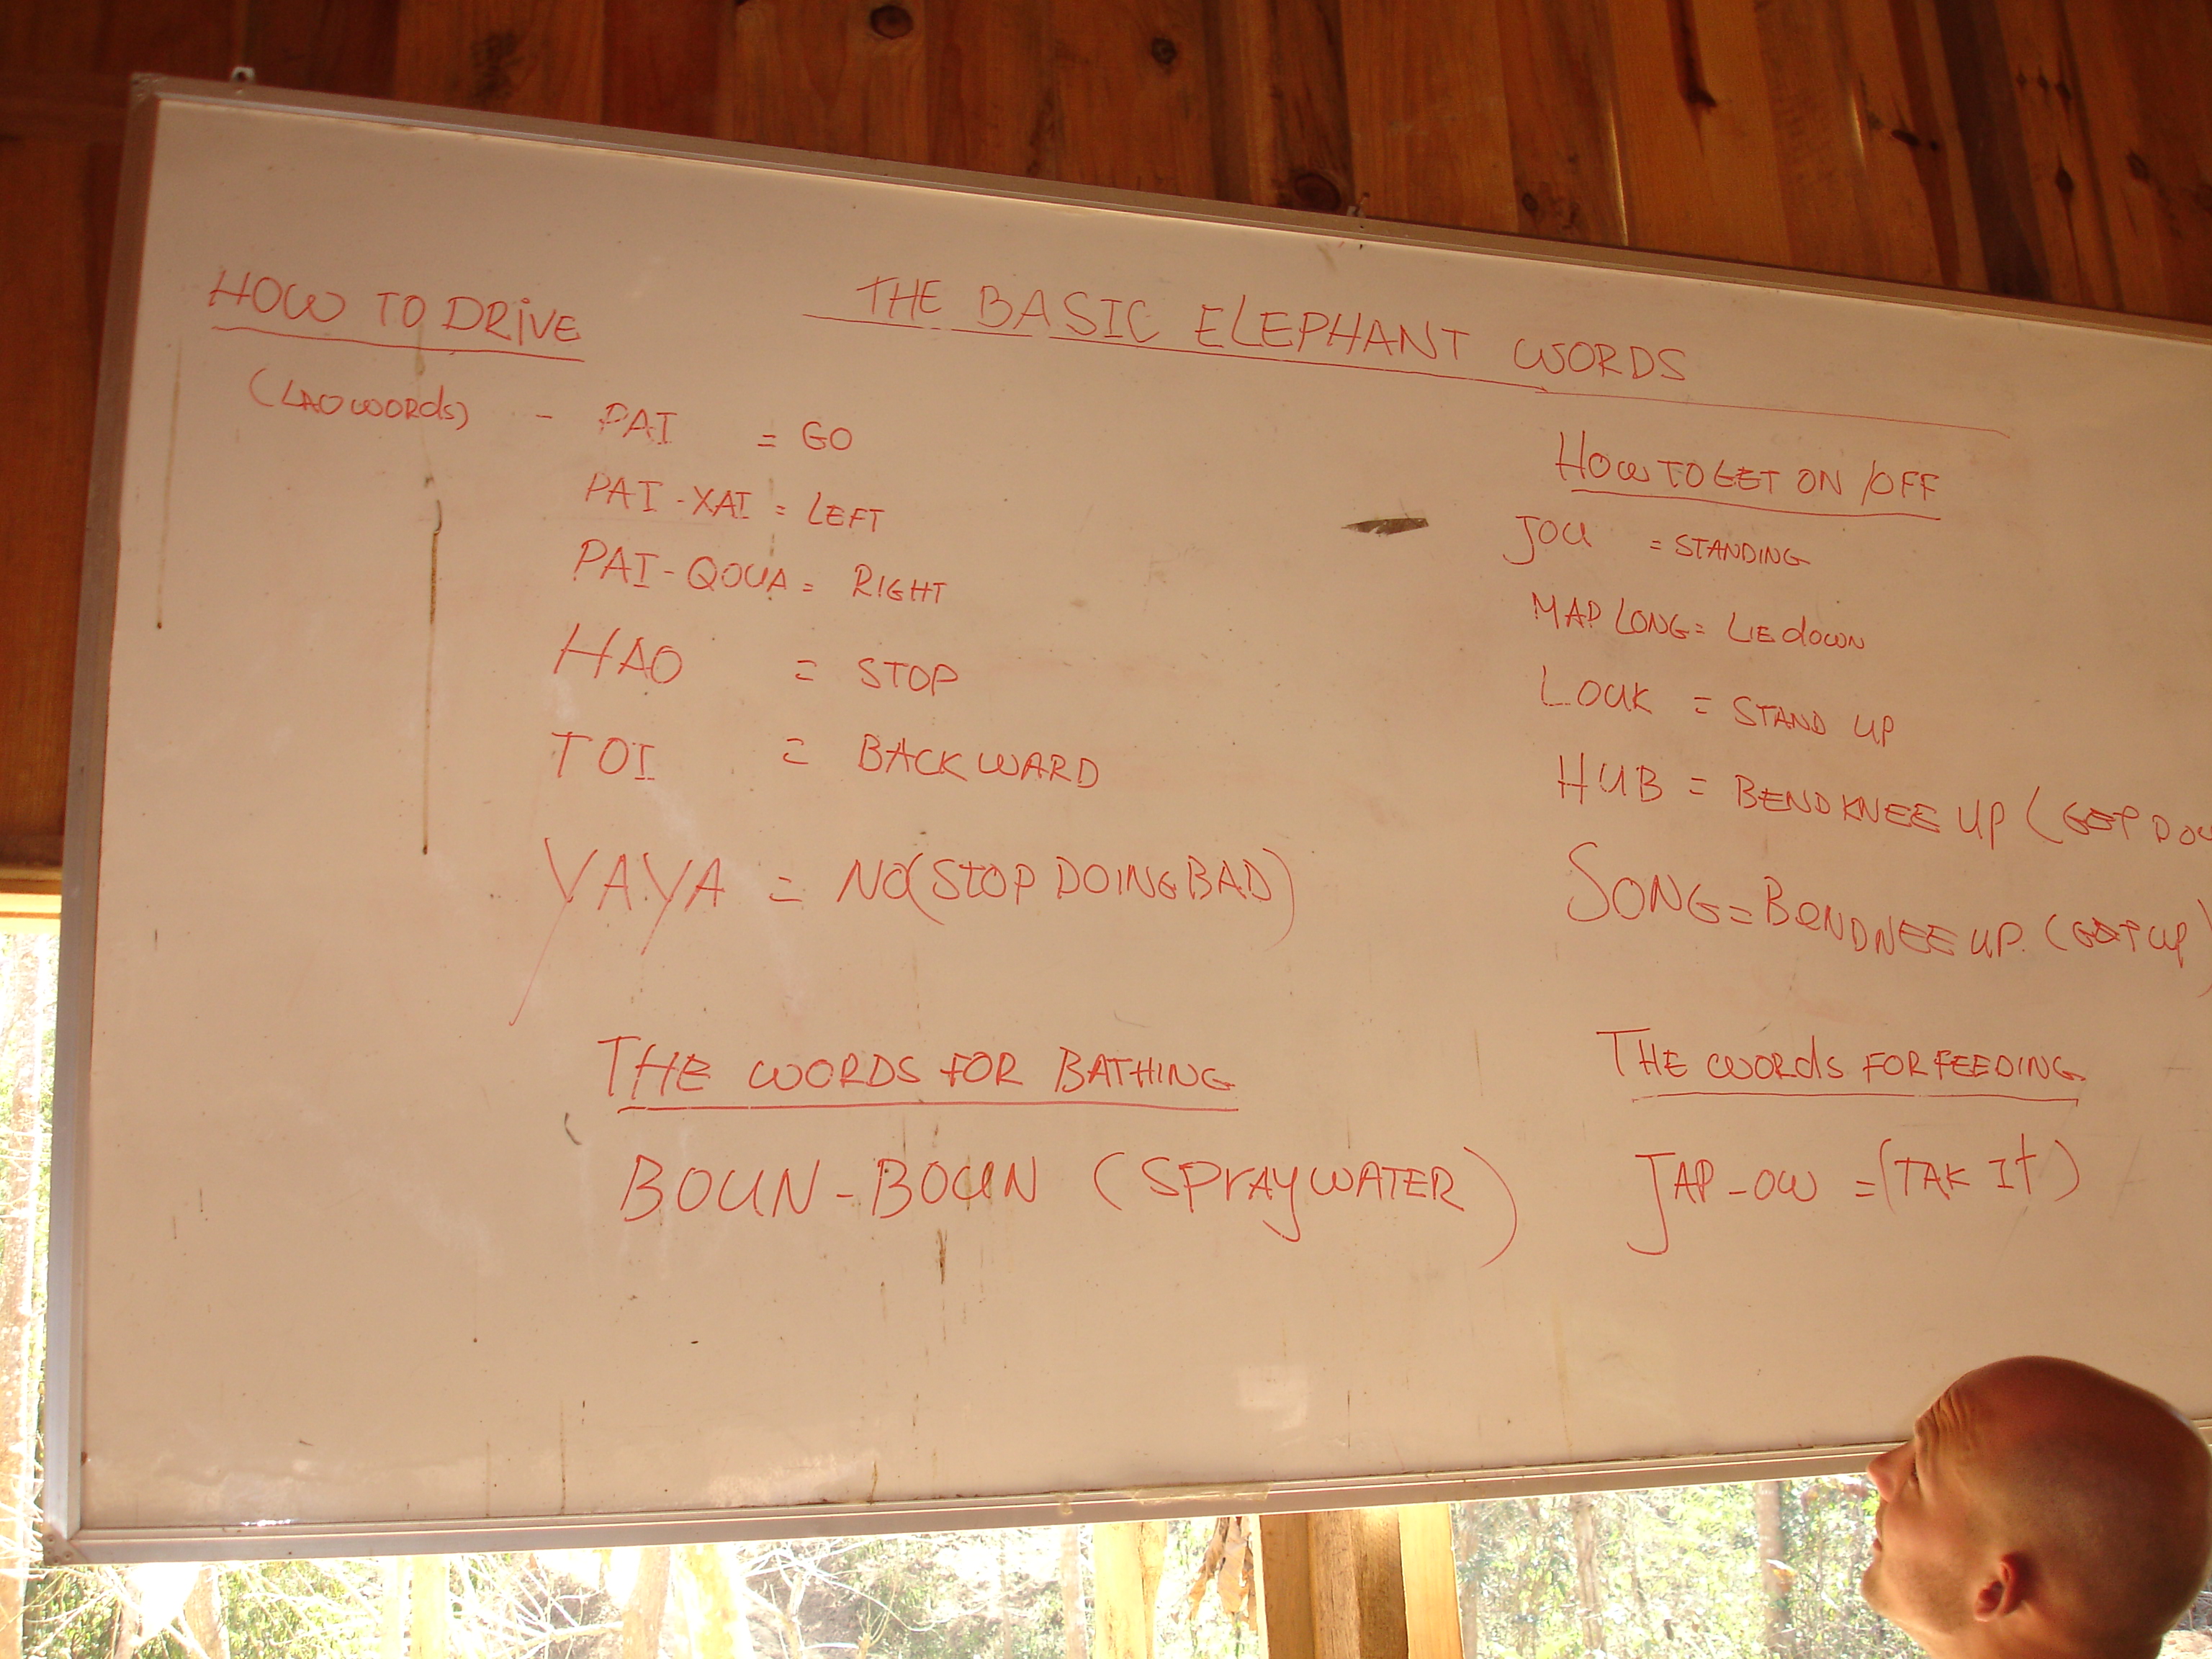 THE BASIC ELEPHANT WORDS
HOW TO DRIVE
(LAO WORDS) - PAI = GO
PAI-XAI = LEFT
PAI-QOUA = RIGHT
HAO = STOP
TOI = BACKWARD
YAYA = NO (STOP DOING BAD)
HOW TO GET ON/OFF
JOU = STANDING
MAP LONG = LIE down
LOUK = STAND UP
HUB = BEND KNEE UP (GET DOU
SONG = BENDNEE UP. (GET UP)
THE WORDS FOR BATHING
BOUN-BOUN (SPRAY WATER)
THE WORdS FOR FEEDING
JAP-OW = (TAK It)